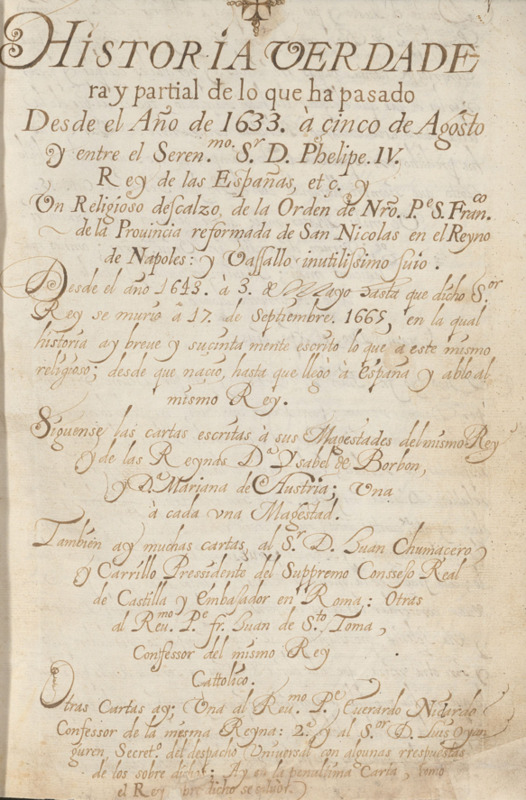 HISTORIA VERDADE
ra y partial de lo que ha pasado
Desde el Año de 1633. à cinco de Agosto
y entre el Seren.mo Sr D. Phelipe. IV.
Rey de las Españas, et c. y
Un Religioso descalzo, de la Orden de Nro. Pe S. Fran.co
de la Provincia reformada de San Nicolas en el Reyno
de Napoles: y Vassallo inutilissimo suio.
Desde el año 1643. à 3. de Mayo hasta que dicho Sor
Rey se murio à 17. de Septiembre. 1665, en la qual
historia ay breve y sucinta mente escrito lo que a este mismo
religioso; desde que nacio, hasta que llego à España y ablo al
mismo Rey.
Siguense las cartas escritas à sus Magestades del mismo Rey
y de las Reynas Da Ysabel de Borbon,
y Da Mariana de Austria; Una
à cada vna Magestad.
También ay muchas cartas, al Sr D. Juan Chumacero
y Carrillo Pressidente del Suppremo Conssejo Real
de Castilla y Embasador en Roma: Otras
al Reu.mo Pe fr. Juan de Sto Toma,
Confessor del mismo Rey
Cattolico.
Otras Cartas ay; Una al Reu.mo Pe Everardo Nidardo
Confessor de la misma Reyna: 2.a y al Sor D. Luis Oyan
guren, Secreto. del despacho Universal con algunas rrespuestas
de los sobre dichos: Ay en la penultima Carta, como
el Rey